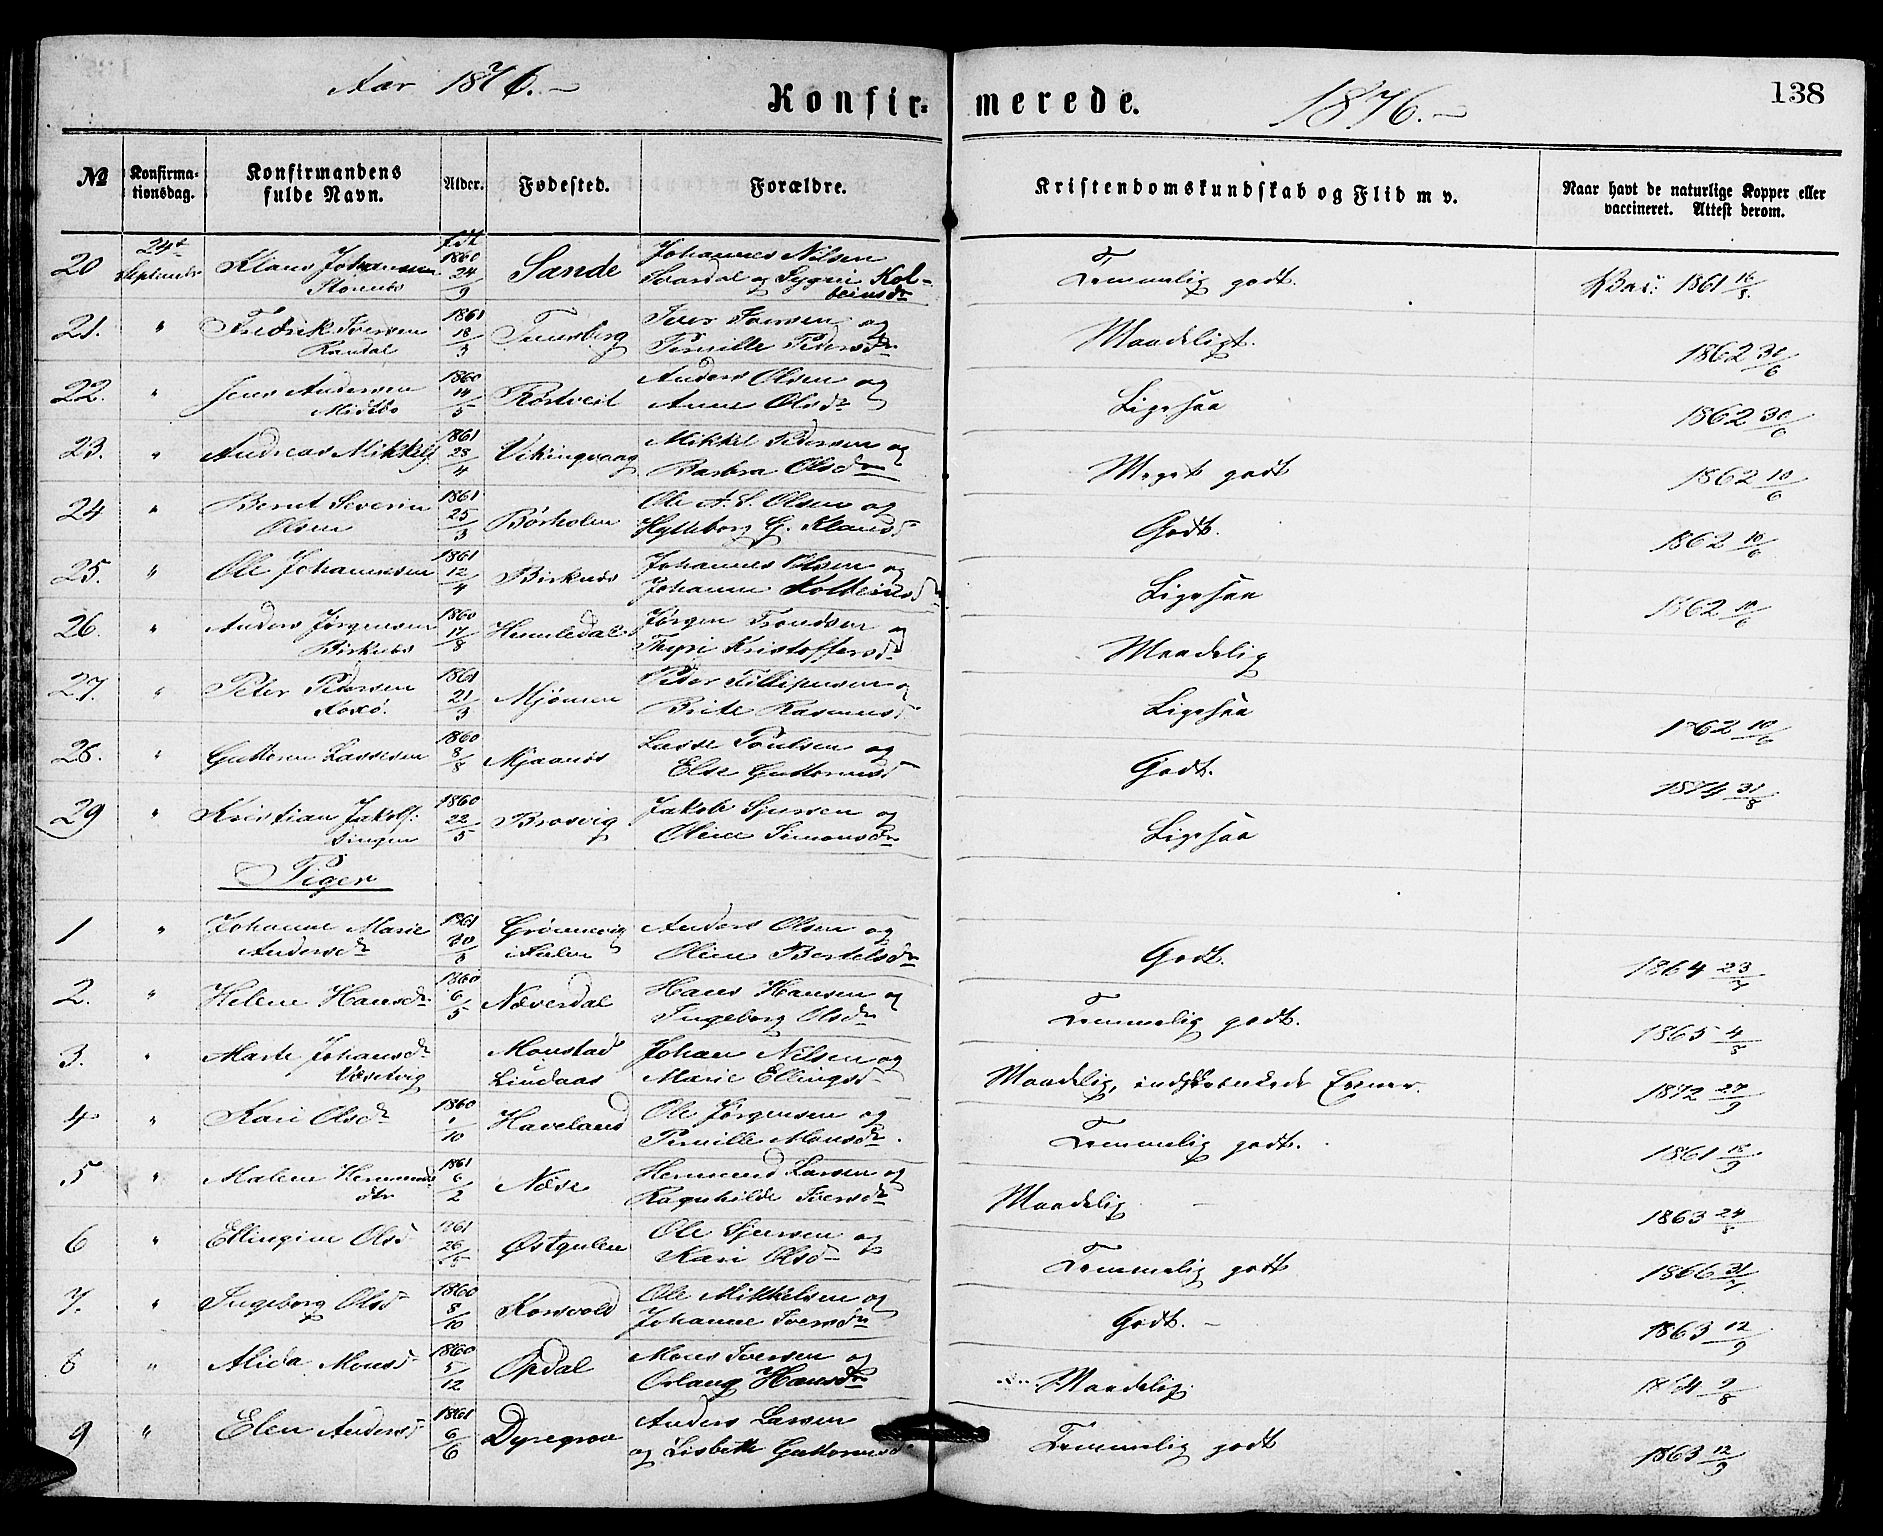 Aar 1876.
Konfirmerede.
1876.
138
No
Konfirmationsdag.
Konfirmandens fulde Navn.
Alder.
Fødested.
Forældre.
Kristendomskundskab og Flid m v.
Naar havt de naturlige Kopper eller vaccineret. Attest derom.
20 24de September Klaus Johannesen født 1860 24/9 Sande Johannes Nilsen og Sygni Kolbeinsdr Temmelig godt. Vac: 1861
21. " Fredrik Iversen Randal 1861 18/3 Tunsberg Iver Iversen og Pernille Pedersdr Maadeligt. 1862 30/6
22. " Jens Andersen Midtbø 1860 14/5 Anders Olsen og Anne Olsdr Ligesaa 1862 30/6
23. " Andreas Mikkels 1861 23/4 Vikingvaag Mikkel Pedersen og Barbra Olsdr Meget godt 1862 10/6
24 " Bernt Severin Olsen 1861 25/3 Børholm Ole A. S. Olsen og G. Klausd Godt. 1862 10/6
25. " Ole Johannesen 1861 12/4 Birknes Johannes Olsen og Johanne Kolbeinsd Ligesaa 1862 10/6
26. " Anders Jørgensen Birknes 1860 17/8 Humledal Jørgen Trondsen og Thyri Kristoffersdr Maadelig
27. " Peter Pedersen 1861 21/3 Mjømen Peder Fillipusen og Brite Rasmusd Ligesaa 1862 10/6
28. " Guttorm Lassesen 1860 8/8 Mjaanes Lasse Poulsen og Else Guttormsd Godt. 1874 31/8
29 " Kristian Jakobs: 1860 22/5 Brosvig Jakob Sjursen og Oline Simonsdr Ligesaa
Piger
1 " Johanne Marie Andersdr 1861 30/5 Grønevig Anders Olsen og Oline Bertelsdr Godt. 1864 23/7
2. " Helene Hansdr. 1860 6/5 Næverdal Hans Hansen og Ingeborg Olsdr Temmelig godt. 1865
3. " Marte Johansdr Monstad Lindaas Johan Nilsen og Marie Ellingsd Maadelig, indskrænkede Evner. 1872 27/9
4 " Kari Olsdr 1860 1/10 Haveland Ole Jørgensen og Pernille Monsdr. Temmelig godt. 1861 18/9
5 " Malene Hermundsdtr 1861 6/2 Næse Hermund Larsen og Ragnhilde Iversdr Maadelig 1863
6 " Ellingine Olsd 1861 26/5 Østgulen Ole Sjursen og Kari Olsdr Temmelig godt 1866 31/7
7. " Ingeborg Olsd 1860 8/10 Korsvold Ole Mikkelsen og Johanne Iversdr Godt. 1863 12/9
8 " Alida Monsd 1860 5/12 Opdal Mons Iversen og Orlaug Hansdr Maadelig. 1864 9/8
9 " Elen Andersd 1861 6/6 Dyregrov Anders Larsen og Lisbeth Guttormsdr Temmelig godt 1863 12/9